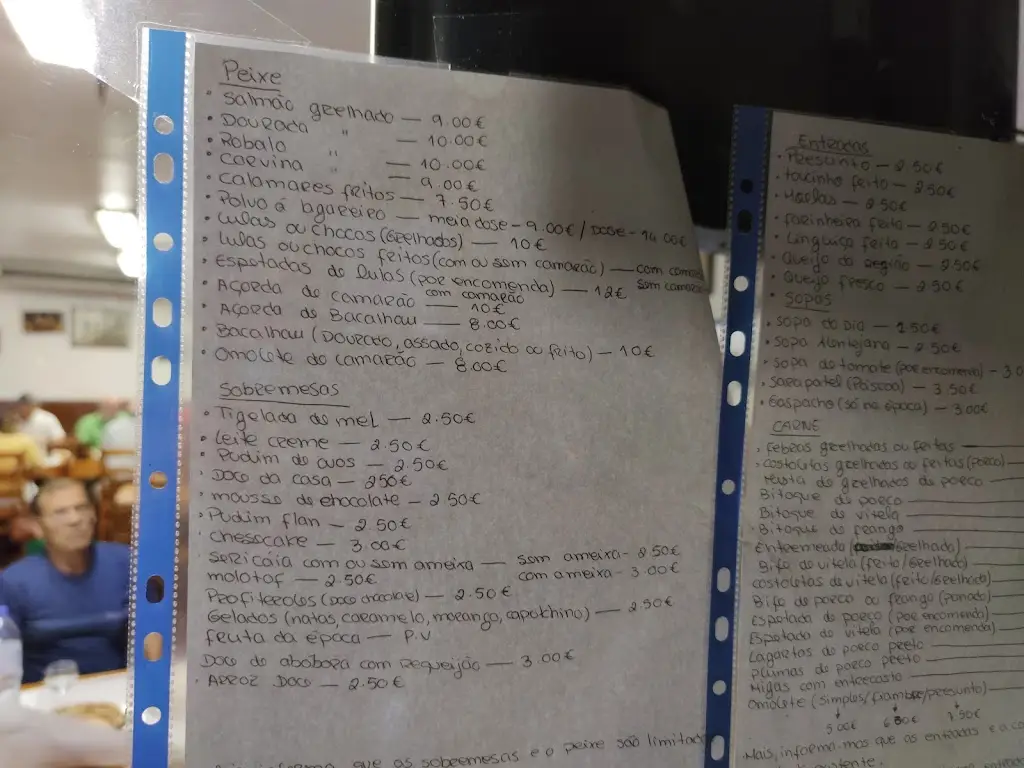 Peixe
• Salmão grelhado — 9.00€
• DOURADA " — 10.00€
• Robalo — 10.00€
• Corvina " — 9.00€
• Calamares fritos — 7.50€
• Polvo á lagareiro — meia dose - 9.00€ / Dose - 14.00€
• Lulas ou chocos (Grelhados) — 10€
• Lulas ou chocos fritos (com ou sem camarão) — com camarão
• Espetadas de Lulas (por encomenda) — 12€ sem camarão
• Açorda de camarão com camarão — 10€
• Açorda de Bacalhau — 8.00€
• Bacalhau (Dourado, assado, cozido ou frito) — 10€
• Omolete de camarão — 8.00€
Sobremesas
• Tigelada de mel — 2.50€
• Leite creme — 2.50€
• Pudim de ovos — 2.50€
• Doce da casa — 250€
• mousse de chocolate — 2 50€
• Pudim flan — 2.50€
• Chesscake — 3.00€
SERICAIA com ou sem ameixa — sem ameixa - 2.50€
molotof — 2.50€ com ameixa - 3.00€
Profiteroles (Doce chocolate) — 2.50€
Gelados (natas, caramelo, morango, capochino) — 2.50€
fruta da época — P.V
Doce de abóbora com Requeijão — 3.00€
• ARROZ DOCE — 2.50€
que as sobremesas e o peixe são limitad
Entradas
• Presunto — 2.50€
• toucinho frito — 2.50€
• Moelas — 2.50€
• farinheira frita — 2.50€
• Linguiça frita — 2.50€
• Queijo da Região — 2.50€
• Queijo fresco — 2.50€
• SOPAS
• Sopa do Dia — 1.50€
• Sopa Alentejana — 2.50€
• Sopa de tomate (por encomenda) - 3.0
• Sarapatel (Páscoa) — 3.50€
• Gaspacho (só na época) — 3.00€
CARNE
• Febras grelhadas ou fritas
• costoletas grelhadas ou fritas (Porco)
• Mista de grelhados de porco
Bitoque de porco
Bitoque de vitela
• Bitoque de frango
Entremeada Grelhado)
Bife de vitela (frito/Grelhado)
costoletas de vitela (frito/Grelhado)
Bife de porco ou frango (Panado)
Espetada de porco (por encomenda)
Espetada de vitela (por encomenda)
Lagartos de porco preto
Plumas de porco preto
Migas com entrecosto
Omolete (simples/fiambre/presunto)
5.00€ 6.50€ 7.50€
Mais, informa-mos que as entradas e a co